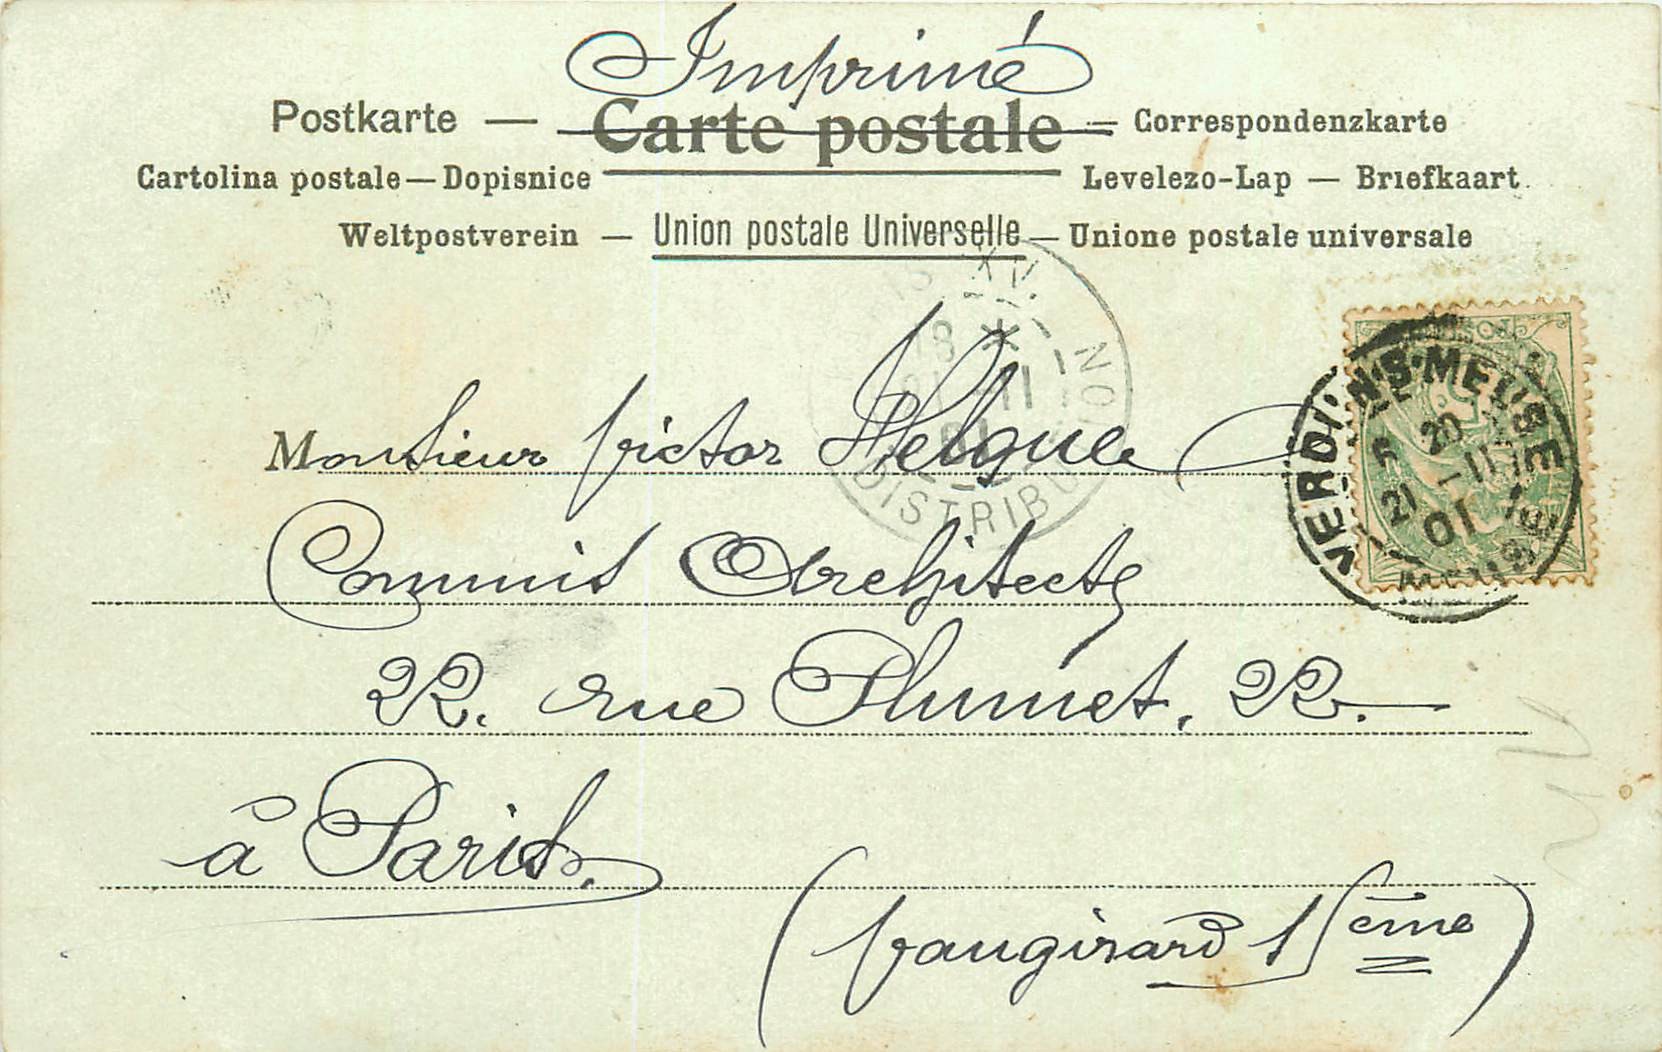 Imprimé
Postkarte — Carte postale — Correspondenzkarte
Cartolina postale — Dopisnice Levelezo-Lap — Briefkaart
Weltpostverein — Union postale Universelle — Unione postale universale
Monsieur Victor
Commis Architecte
22. rue Plumet, 22.
à Paris.
(Vaugirard 15ème)
VERDUN-S-MEUSE
20
21 -11
01
XV
18 *
21 -11
01
DISTRIBUTION